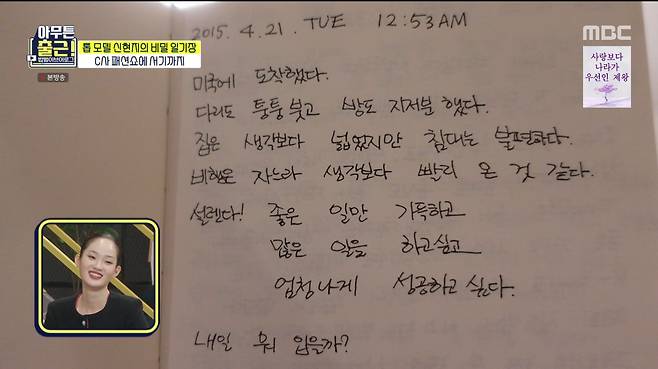 아무튼
출근!
밥벌이 브이로그
톱 모델 신현지의 비밀 일기장
C사 패션쇼에 서기까지
본방송
MBC
사랑보다
나라가
우선인 제왕
2015. 4. 21. TUE 12:53AM
미국에 도착했다.
다리도 퉁퉁 붓고 방도 지저분 했다.
집은 생각보다 넓었지만 침대는 불편하다.
비행은 자느라 생각보다 빨리 온 것 같다.
설렌다! 좋은 일만 가득하고
많은 일을 하고싶고
엄청나게 성공하고 싶다.
내일 뭐 입을까?